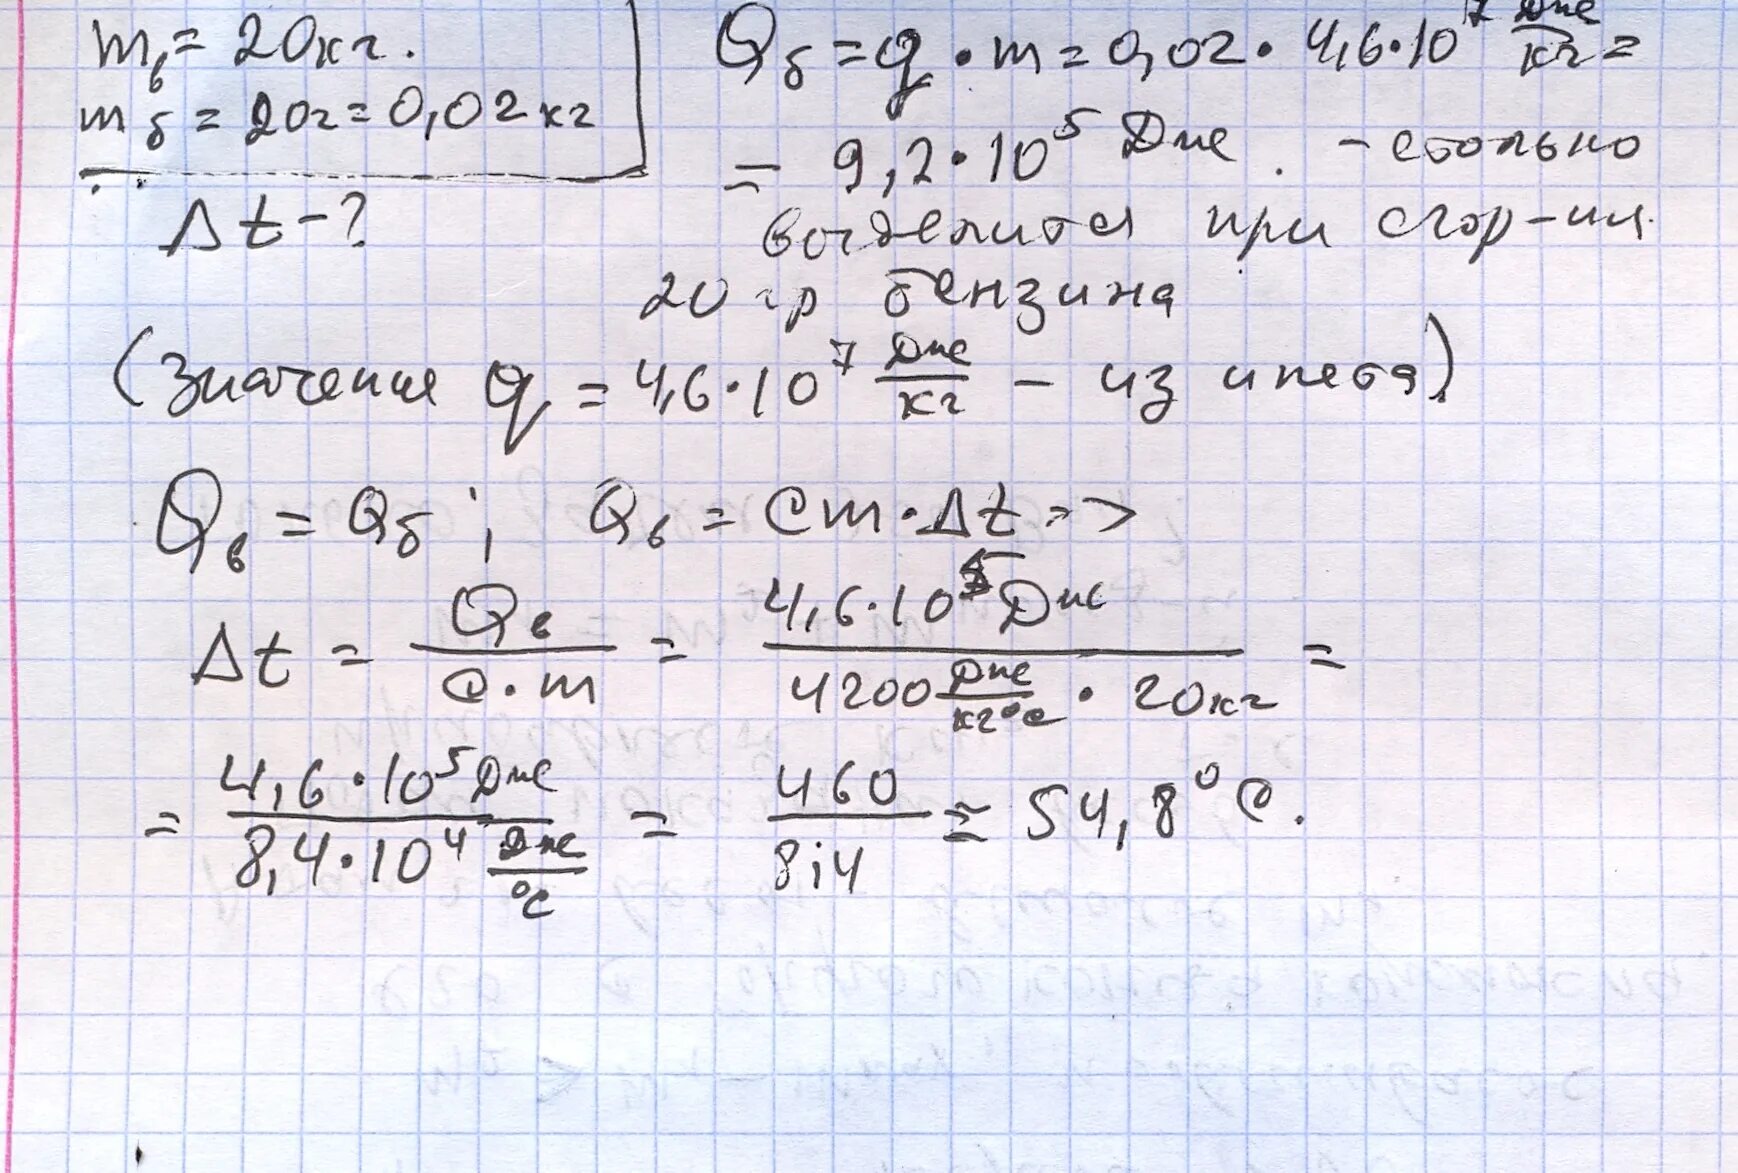 mв = 20кг.
mб = 20г = 0,02 кг
Δt - ?
Qб = q · m = 0,02 · 4,6·10⁷ Дж/кг =
= 9,2·10⁵ Дж. - столько
выделится при сгор-ии
20 гр бензина
(Значение q = 4,6·10⁷ Дж/кг - из инета)
Qв = Qб ; Qв = cm·Δt =>
Δt = Qв / c·m = 4,6·10⁵ Дж / 4200 Дж/кг°c · 20кг =
= 4,6·10⁵ Дж / 8,4·10⁴ Дж/°c = 460 / 8,4 ≈ 54,8°C.